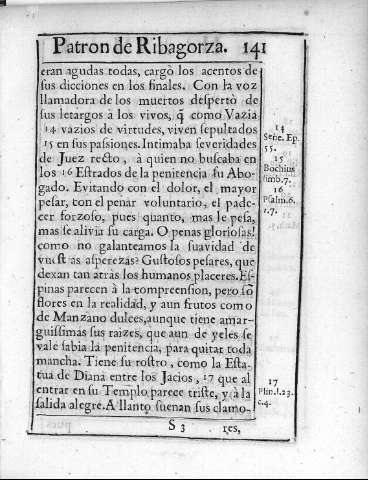 Patron de Ribagorza. 141
eran agudas todas, cargò los acentos de
sus dicciones en los finales. Con la voz
llamadora de los muertos despertò de
sus letargos à los vivos, q̃ como Vazia
14 vazios de virtudes, viven sepultados
15 en sus passiones. Intimaba severidades
de Juez recto, à quien no buscaba en
los 16 Estrados de la penitencia su Abo-
gado. Evitando con el dolor, el mayor
pesar, con el penar voluntario, el pade-
cer forzoso, pues quanto, mas le pesa,
mas se alivia su carga. O penas gloriosas!
como no galanteamos la suavidad de
vuestras asperezas? Gustosos pesares, que
dexan tan atràs los humanos placeres. Es-
pinas parecen à la compreension, pero sõ
flores en la realidad, y aun frutos como
de Manzano dulces, aunque tiene amar-
guissimas sus raizes, que aun de yeles se
vale sabia la penitencia, para quitar toda
mancha. Tiene su rostro, como la Esta-
tua de Diana entre los Jacios, 17 que al
entrar en su Templo parece triste, y à la
salida alegre. A llanto suenan sus clamo-
S 3 res,
14
Sene. Ep.
55.
15
Bochius
simb. 7.
16
Psalm. 6.
v. 7.
17
Plin. l. 23.
c. 4.